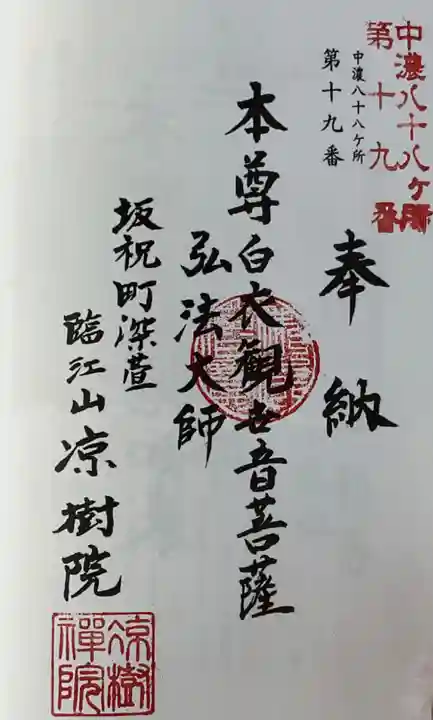 中濃八十八ヶ所
第十九番
中濃八十八ケ所
第十九番
奉納
本尊白衣觀世音菩薩
弘法大師
坂祝町深萱
臨江山凉樹院
凉樹
禪院